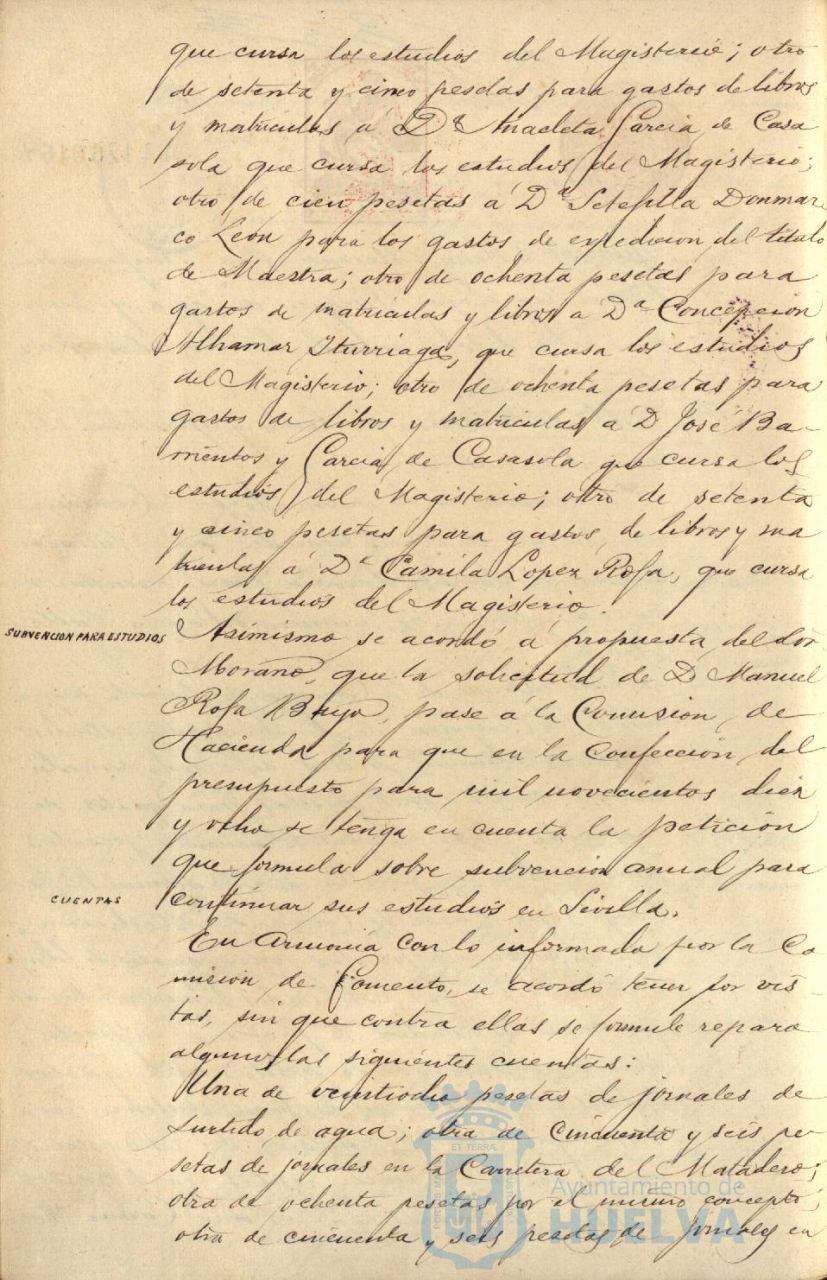 que cursa los estudios del Magisterio; otro
de setenta y cinco pesetas para gastos de libros
y matriculas á Dª Anacleta Garcia de Casa
sola que cursa los estudios del Magisterio;
otro de cien pesetas á Dª Setefilla Donmar
co León para los gastos de expedicion del titulo
de Maestra; otro de ochenta pesetas para
gastos de matriculas y libros a Dª Concepcion
Alhamar Iturriaga, que cursa los estudios
del Magisterio; otro de ochenta pesetas para
gastos de libros y matriculas á D José Ba-
rrientos y Garcia de Casasola que cursa los
estudios del Magisterio; otro de setenta
y cinco pesetas para gastos de libros y ma
triculas á Dª Camila Lopez Rofa, que cursa
los estudios del Magisterio.
SUBVENCION PARA ESTUDIOS
Asimismo se acordó á propuesta del Sor
Morano, que la solicitud de D Manuel
Rofa Bayo, pase á la Comision de
Hacienda para que en la confección del
presupuesto para mil novecientos diez
y ocho se tenga en cuenta la petición
que formula sobre subvencion anual para
continuar sus estudios en Sevilla.
CUENTAS
En armonía con lo informado por la Co
mision de Fomento, se acordó tener por vis-
tas, sin que contra ellas se formule reparo
alguno, las siguientes cuentas:
Una de veintiocho pesetas de jornales de
surtido de agua; otra de cincuenta y seis pe
setas de jornales en la Carretera del Matadero;
otra de ochenta pesetas por el mismo concepto;
otra de cincuenta y seis pesetas de jornales en
Ayuntamiento de
HUELVA